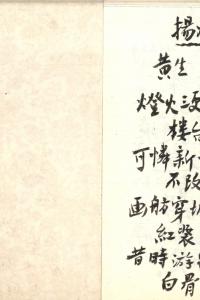 揚
黄生
燈火
楼台
可憐新
不改
画舫穿
紅装
昔時游
白骨